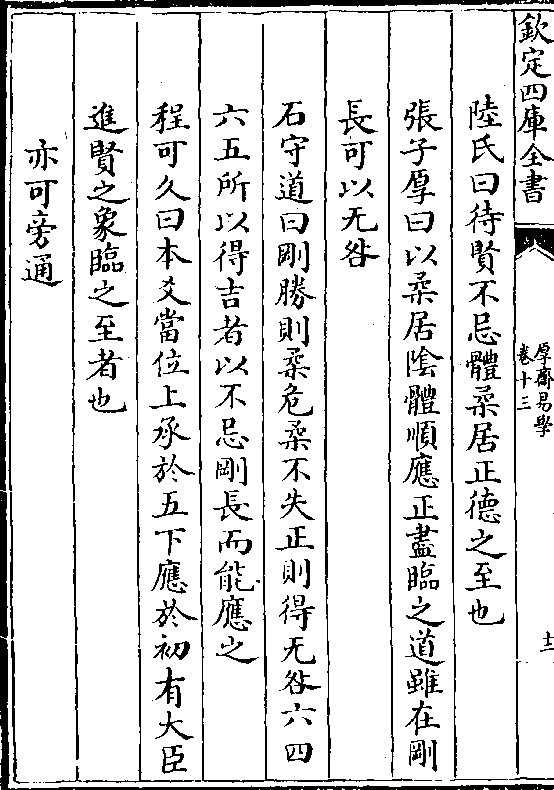 欽定四庫全書
厚齋易學
卷十三
十二
陸氏曰待賢不忌體柔居正德之至也
張子厚曰以柔居陰體順應正盡臨之道雖在剛
長可以无咎
石守道曰剛勝則柔危柔不失正則得无咎六四
六五所以得吉者以不忌剛長而能應之
程可久曰本爻當位上承於五下應於初有大臣
進賢之象臨之至者也
亦可旁通